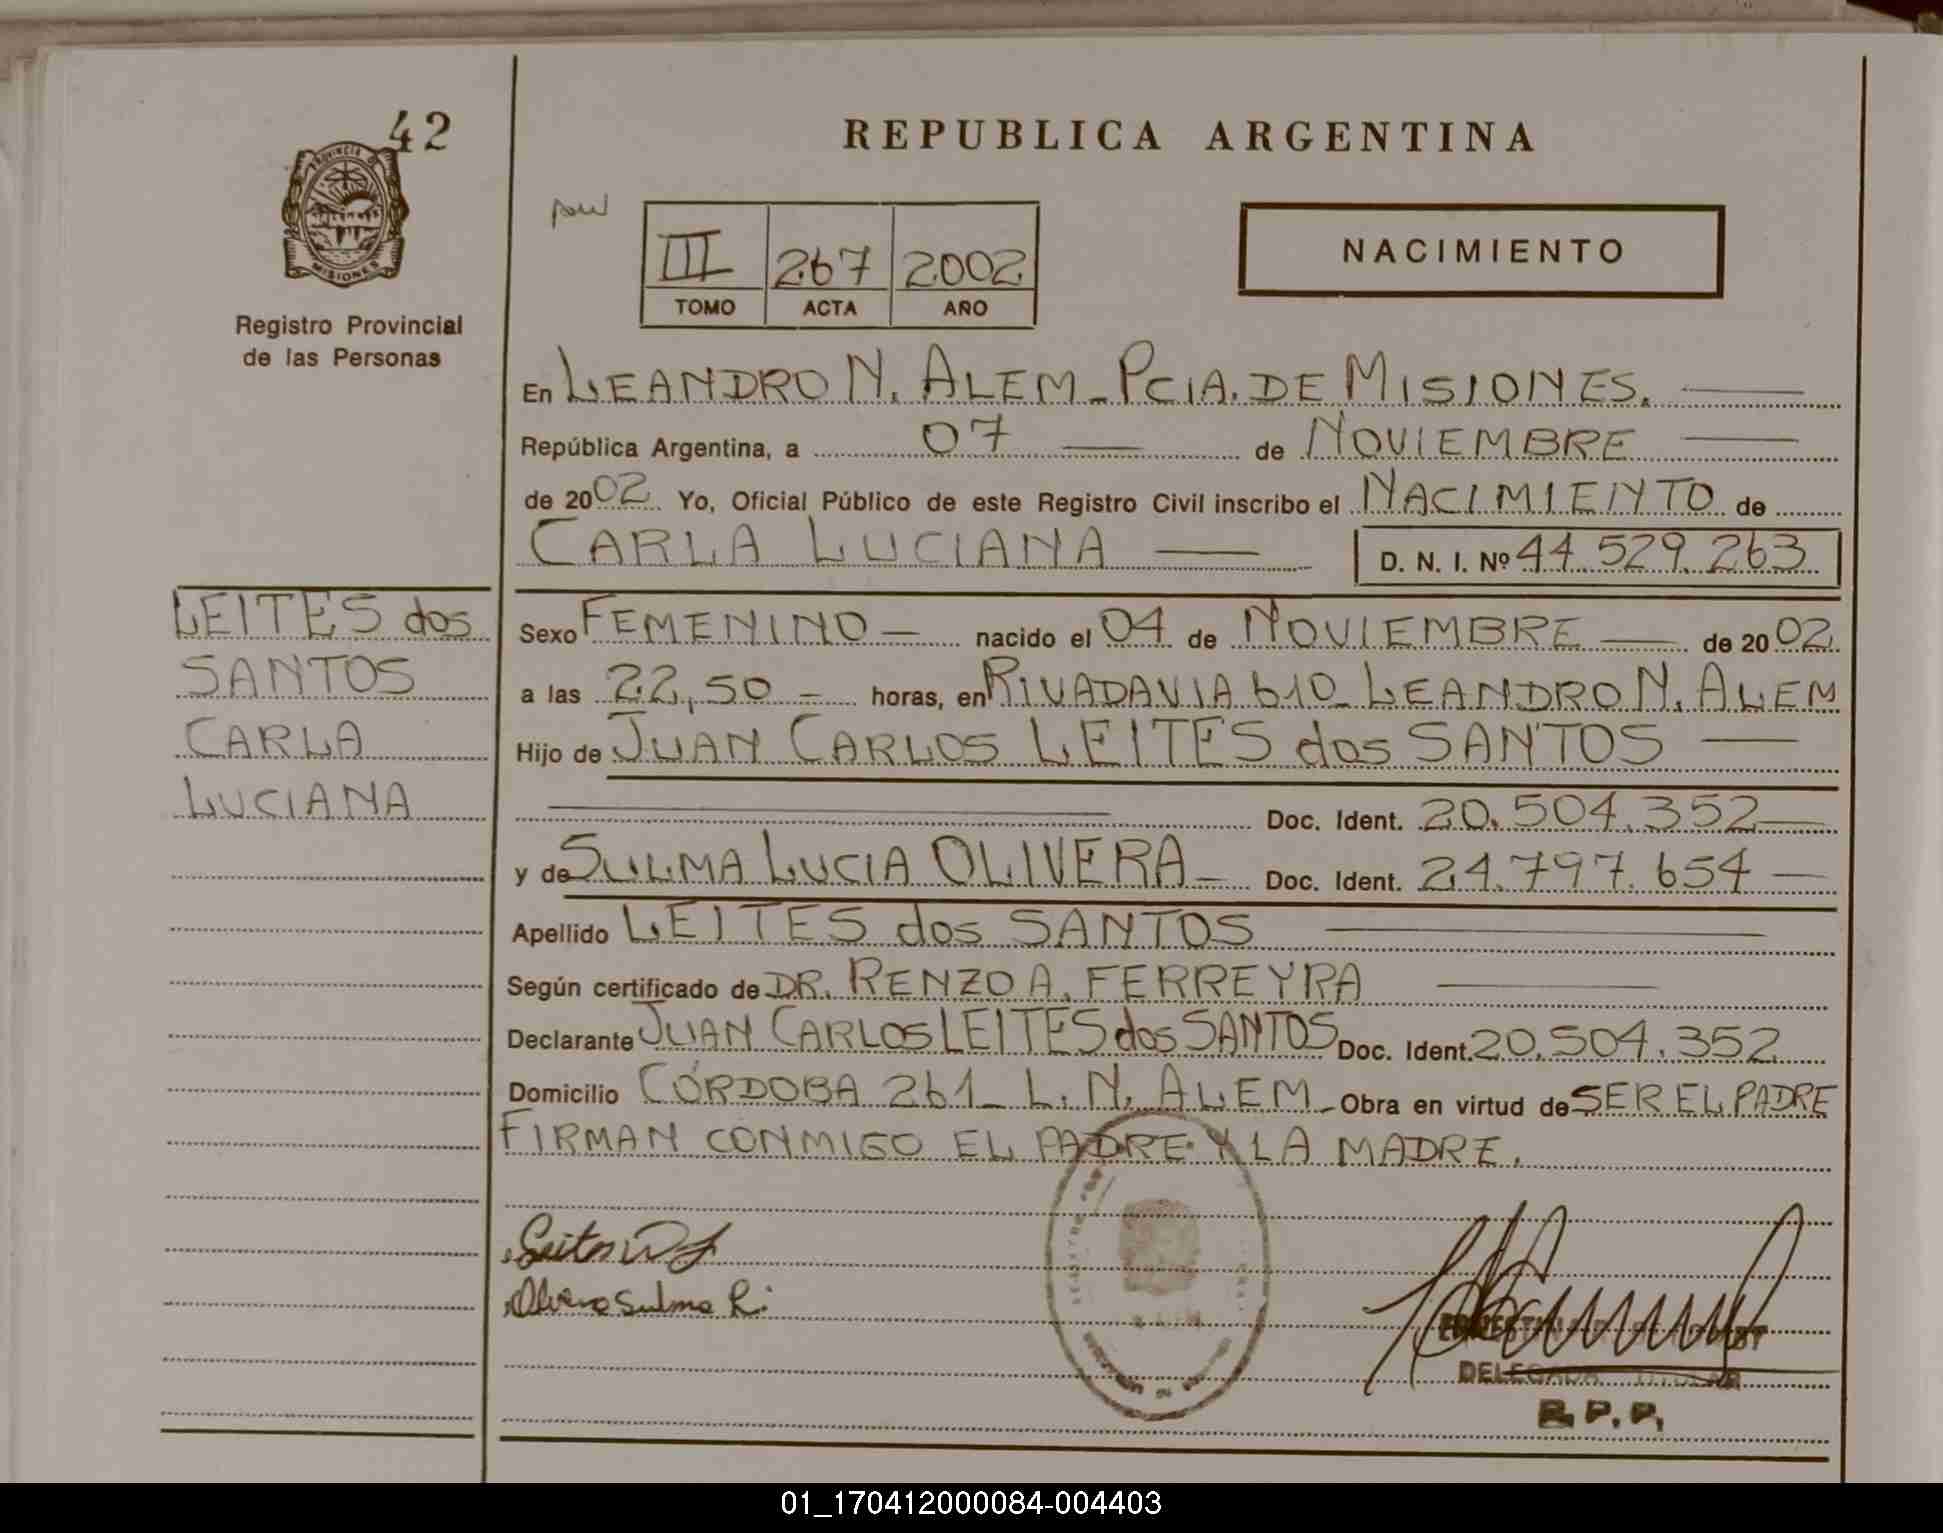 42
PROVINCIA DE
MISIONES
Registro Provincial
de las Personas
REPUBLICA ARGENTINA
III 267 2002
TOMO ACTA AÑO
NACIMIENTO
En LEANDRO N. ALEM - PCIA. DE MISIONES.
República Argentina, a 07 de NOVIEMBRE
de 2002 Yo, Oficial Público de este Registro Civil inscribo el NACIMIENTO de
CARLA LUCIANA D. N. I. Nº 44.529.263
LEITES dos
SANTOS
CARLA
LUCIANA
Sexo FEMENINO - nacido el 04 de NOVIEMBRE de 2002
a las 22,50 - horas, en RIVADAVIA 610 - LEANDRO N. ALEM
Hijo de JUAN CARLOS LEITES dos SANTOS
Doc. Ident. 20.504.352
y de SULMA LUCIA OLIVERA - Doc. Ident. 24.797.654
Apellido LEITES dos SANTOS
Según certificado de DR. RENZO A. FERREYRA
Declarante JUAN CARLOS LEITES dos SANTOS Doc. Ident. 20.504.352
Domicilio CÓRDOBA 261 - L. N. ALEM - Obra en virtud de SER EL PADRE
FIRMAN CONMIGO EL PADRE Y LA MADRE.
Olivera Sulma L.
DELEGADA TITULAR
R.P.P.
01_170412000084-004403